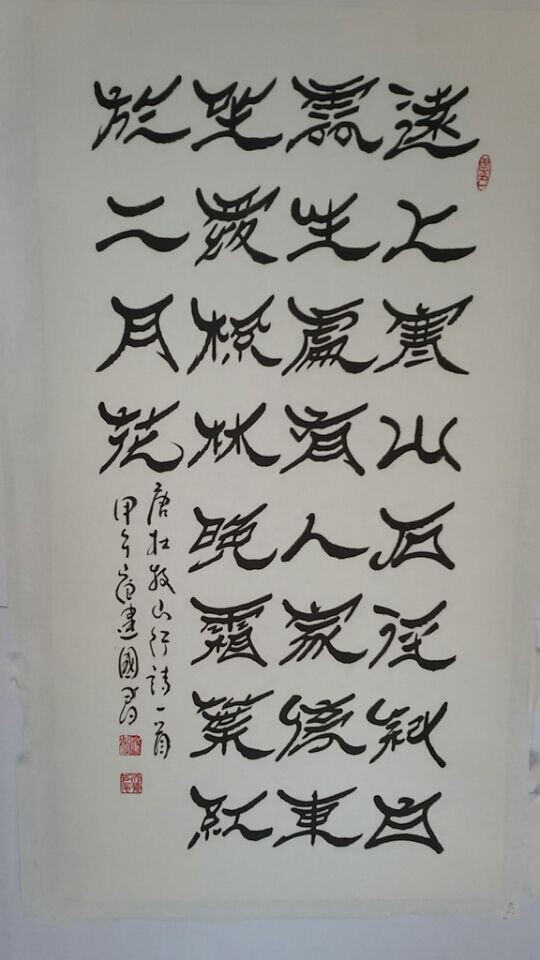 遠上寒山石徑斜白
雲生處有人家停車
坐愛楓林晚霜葉紅
於二月花
唐杜牧山行詩一首
甲午建國書